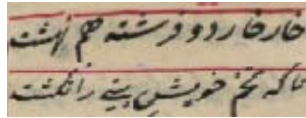 خار خار دو فرشته هم نهشت
تا که تخم خویش بینی را نکشت